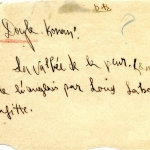 Doyle. Konan.
La vallée de la peur.
de l'anglais par Louis Labat